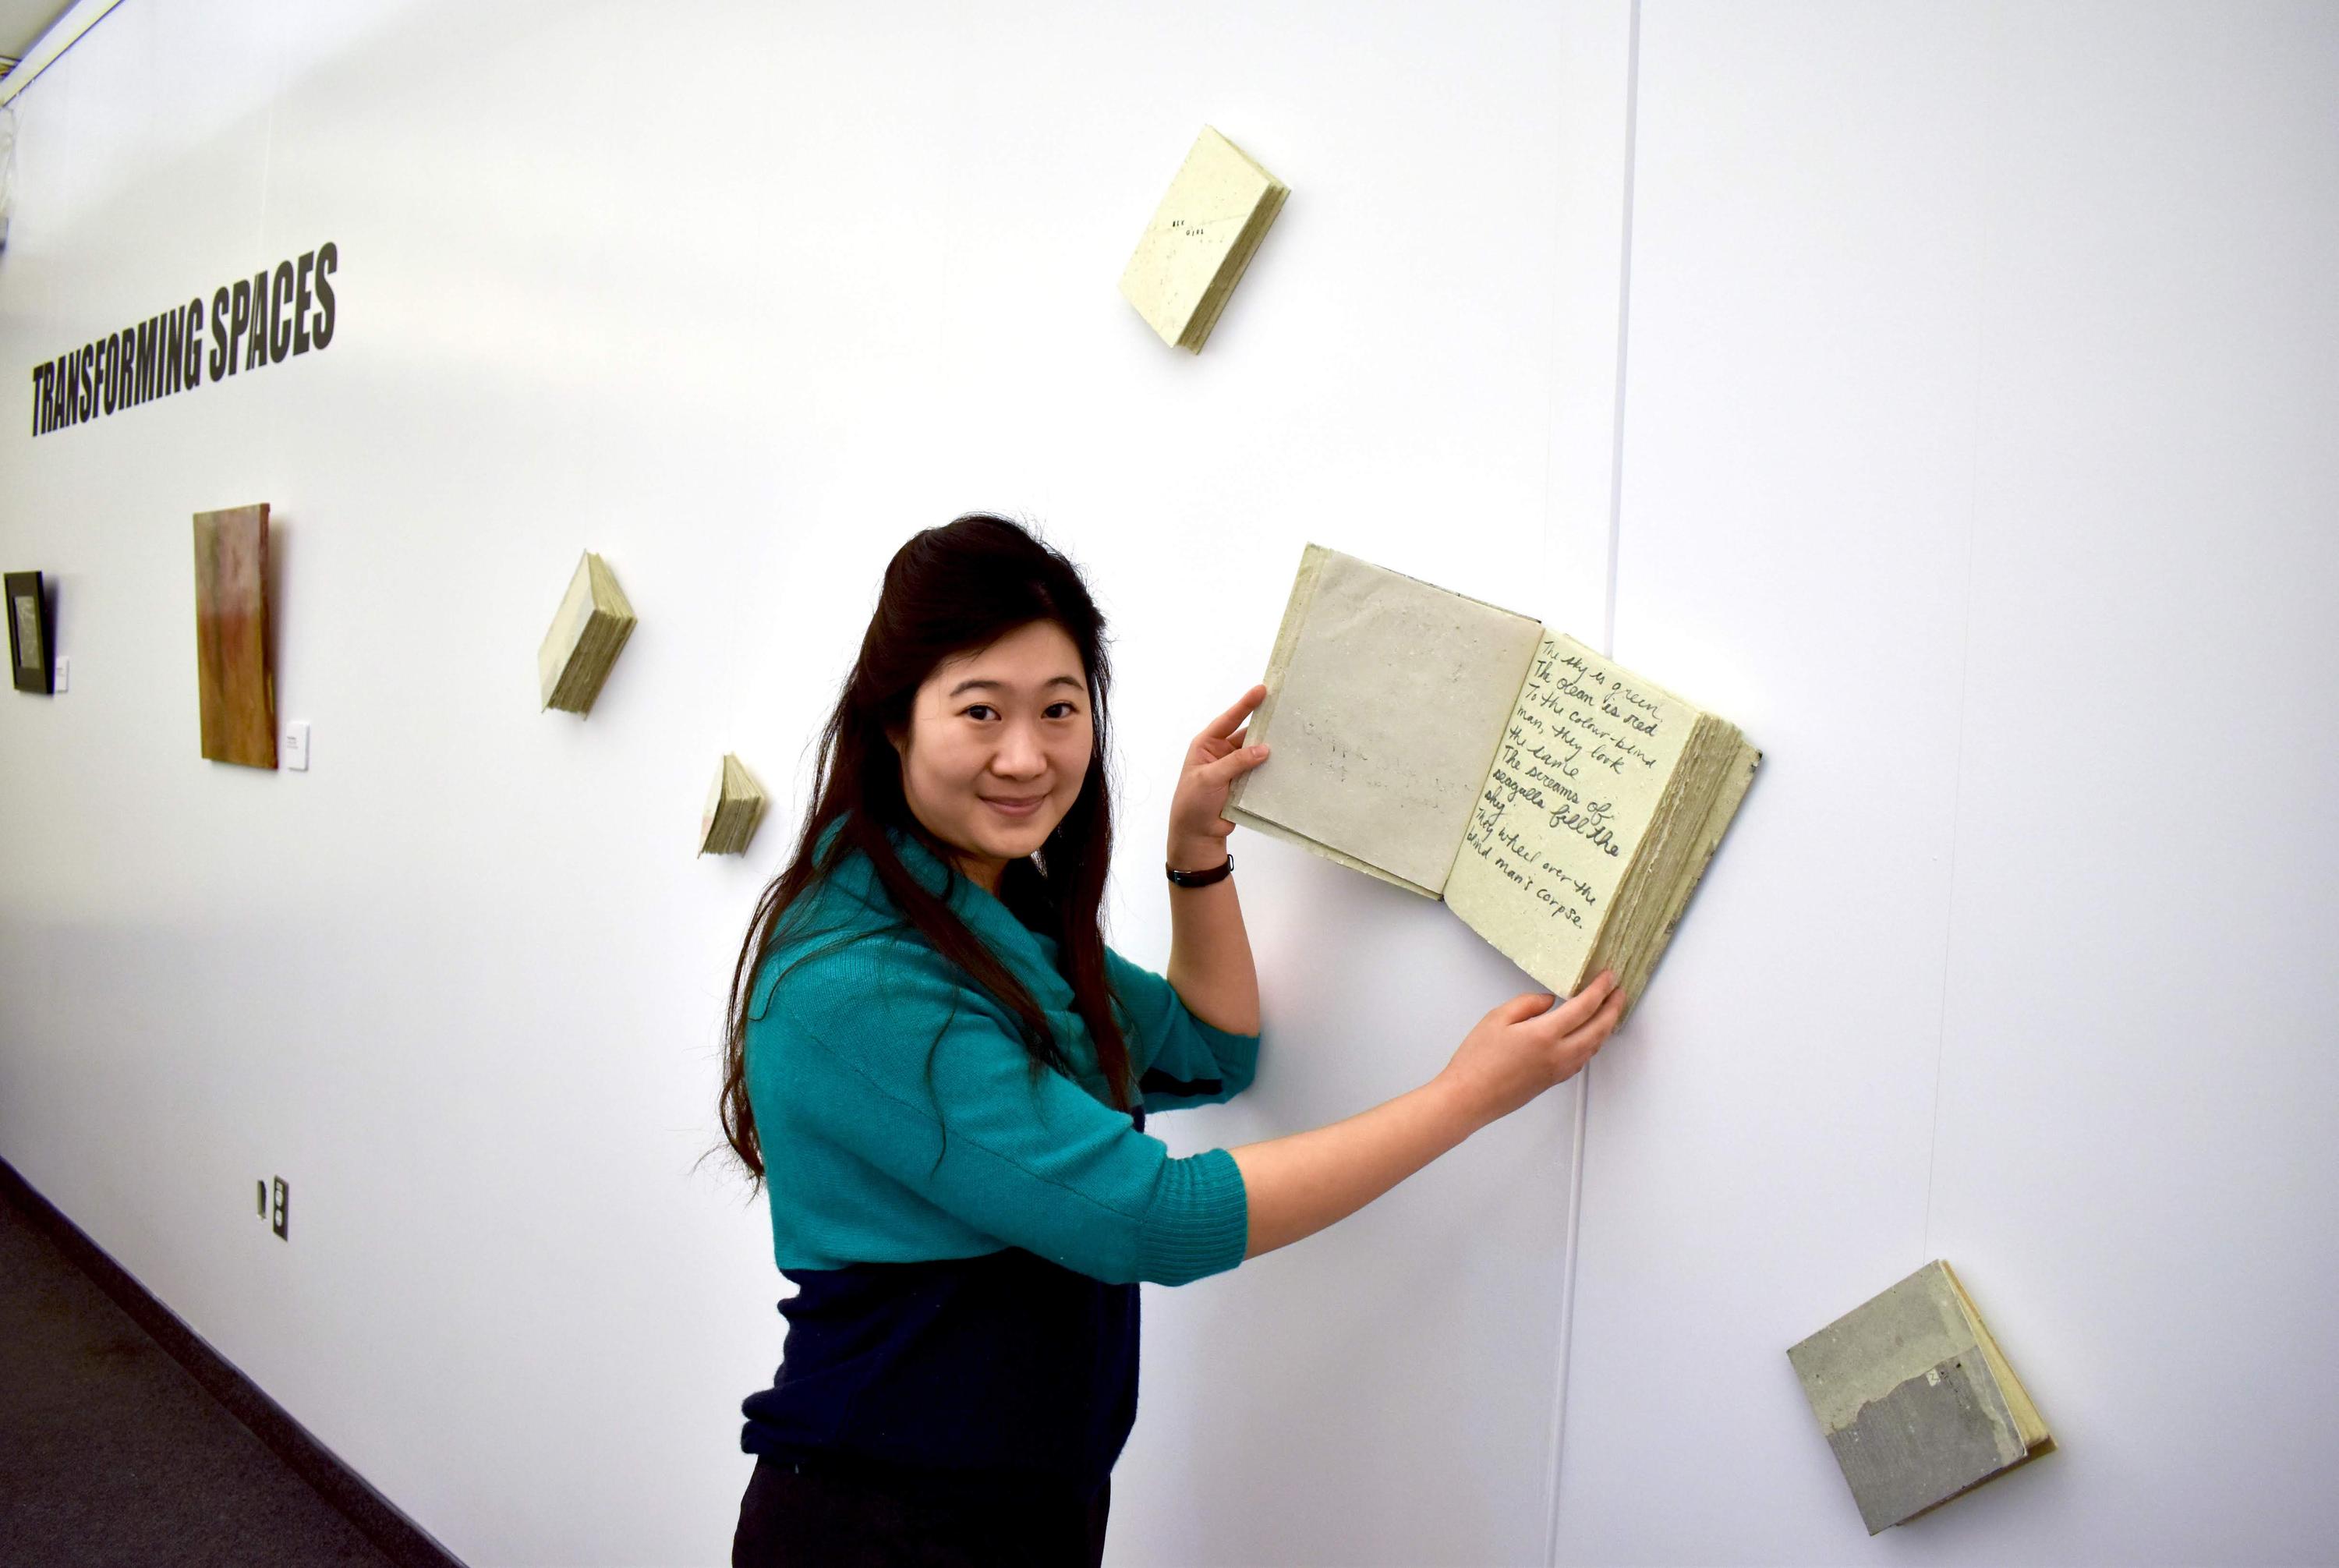 TRANSFORMING SPACES
The sky is green.
The ocean is red
To the colour-blind
man, they look
the same
The screams of
seagulls fill the
sky.
They wheel over the
blind man's corpse.